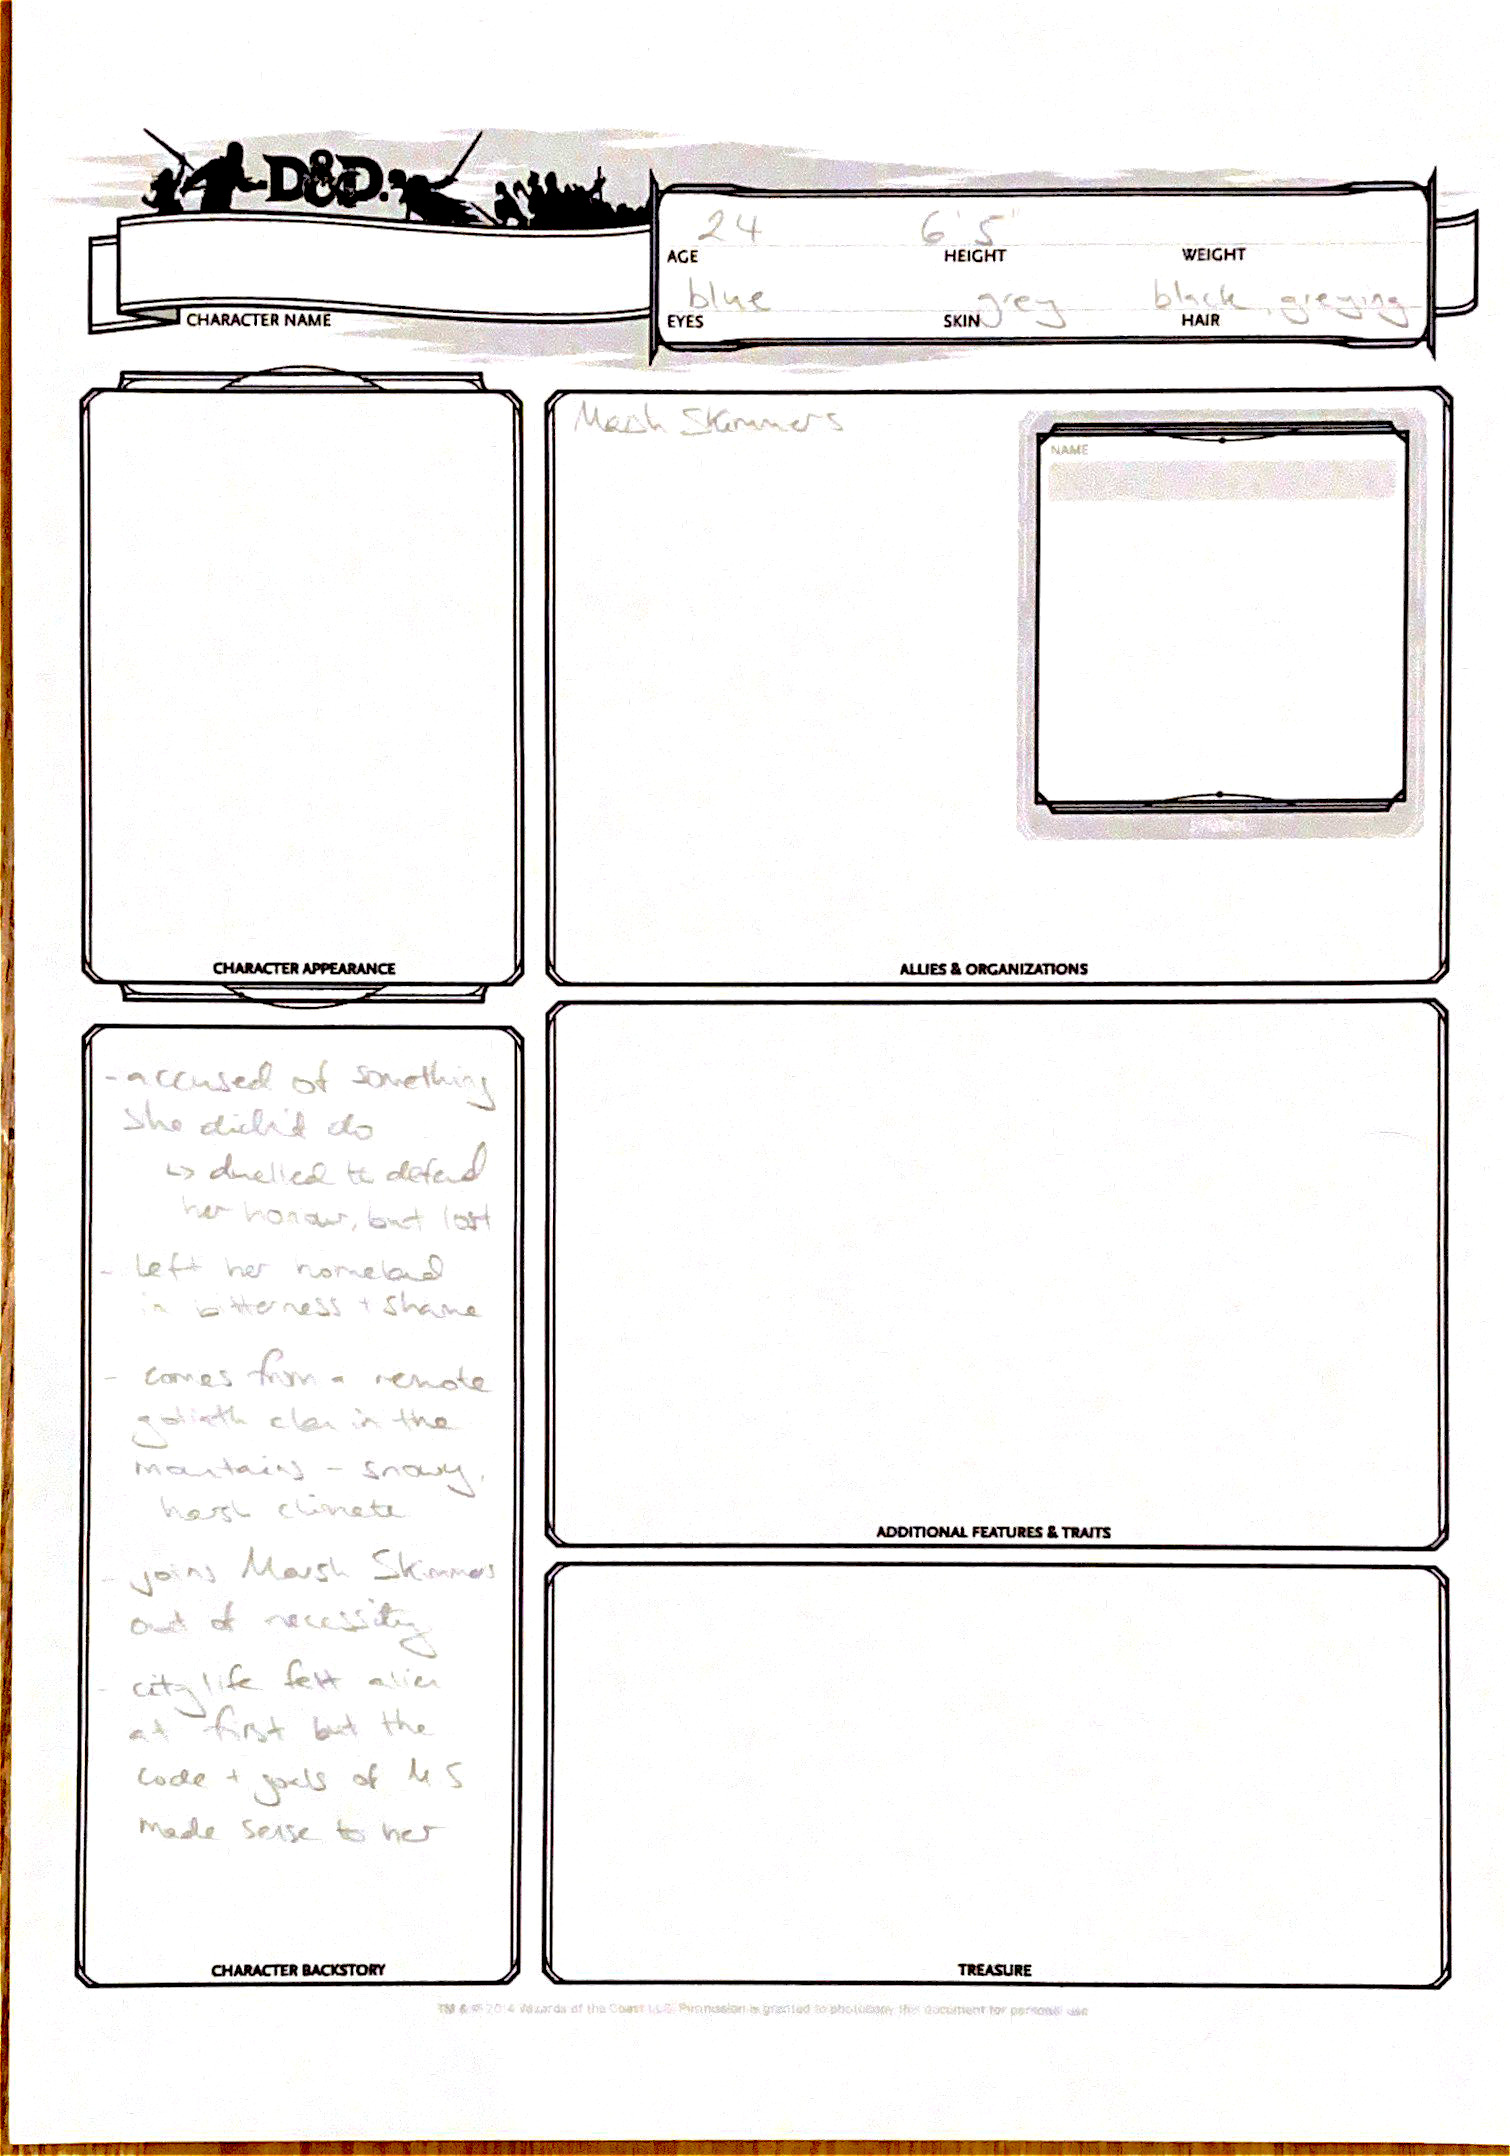 D&D.
24 6'5"
AGE HEIGHT WEIGHT
blue grey black, greying
EYES SKIN HAIR
CHARACTER NAME
Marsh Skimmers
NAME
CHARACTER APPEARANCE
ALLIES & ORGANIZATIONS
- accused of something
she didn't do
↳ duelled to defend
her honour, but lost
- left her homeland
in bitterness + shame
- comes from a remote
goliath clan in the
mountains - snowy,
harsh climate
- joins Marsh Skimmers
out of necessity
- city life felt alien
at first but the
code + goals of MS
made sense to her
CHARACTER BACKSTORY
ADDITIONAL FEATURES & TRAITS
TREASURE
TM & © 2014 Wizards of the Coast LLC. Permission is granted to photocopy this document for personal use